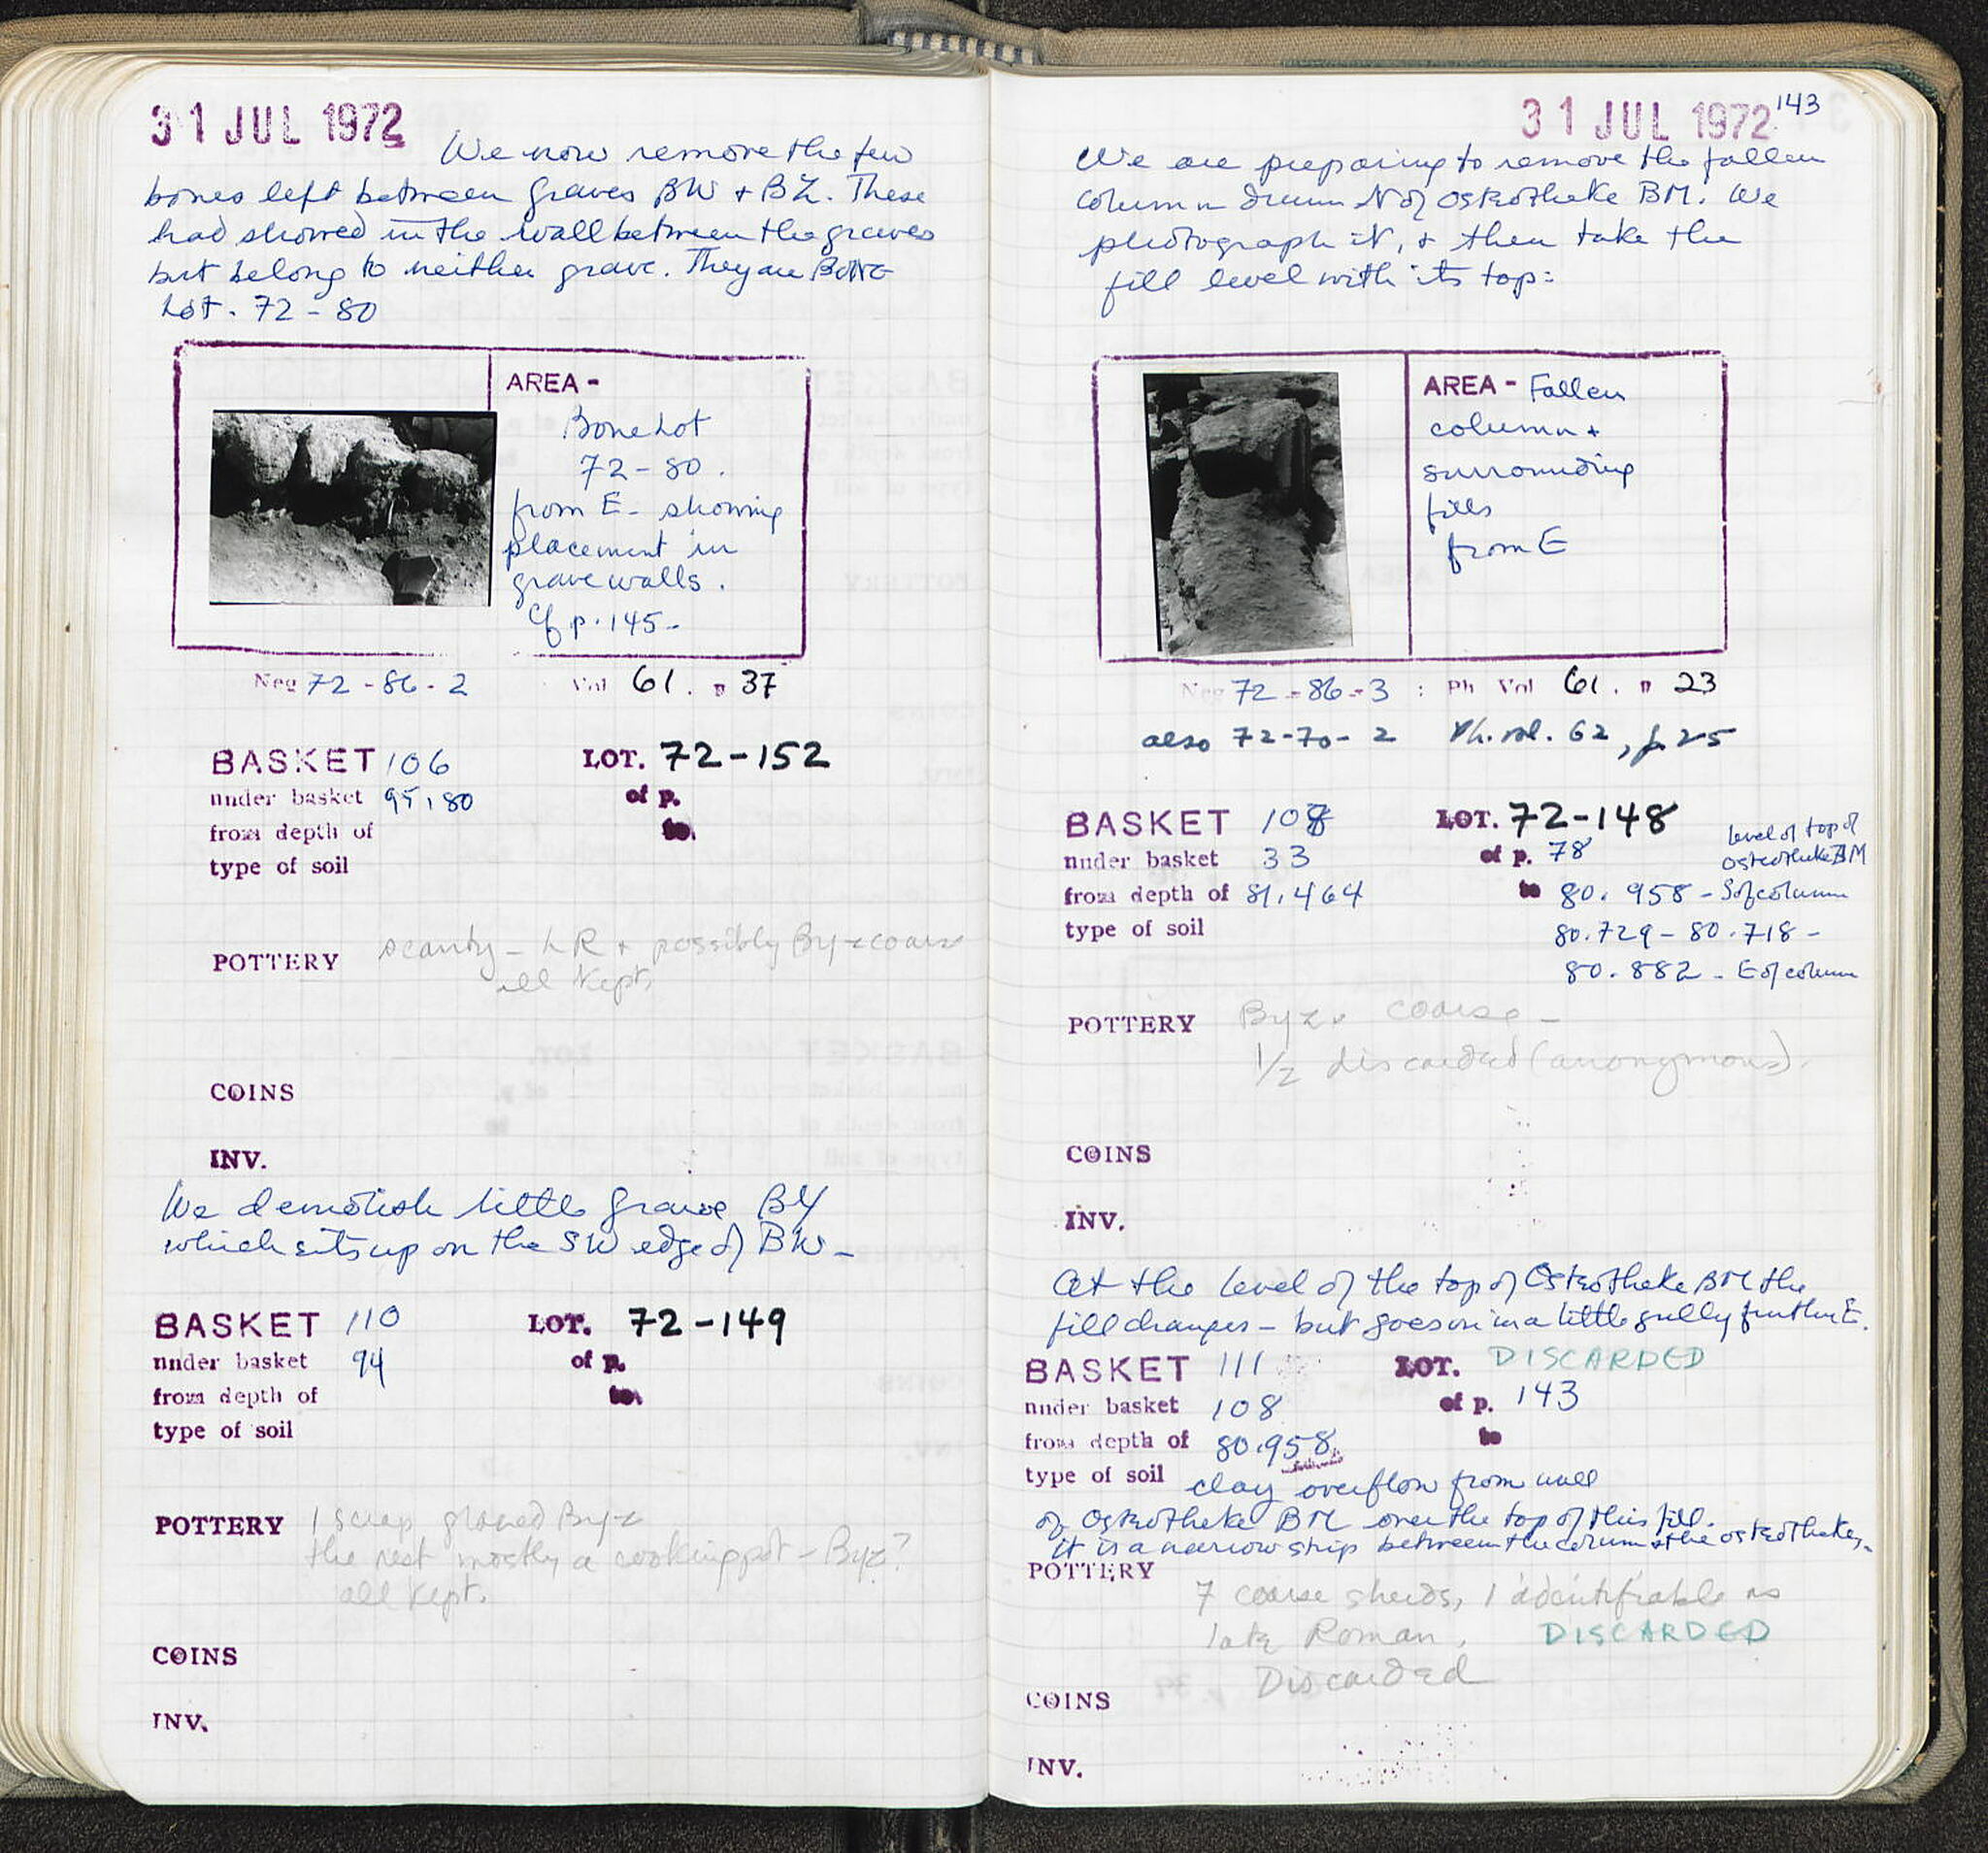 31 JUL 1972
We now remove the few
bones left between graves BW + BZ. These
had showed in the wall between the graves
but belong to neither grave. They are BONE
Lot. 72-80
AREA -
Bone Lot
72-80.
from E - showing
placement in
grave walls.
Cf p. 145-
Neg 72-86-2 : Vol 61. p 37
BASKET 106 LOT. 72-152
under basket 95, 80 of p.
from depth of to
type of soil
POTTERY scanty - LR + possibly Byz coarse
all kept
COINS
INV.
We demolish little grave BY
which sits up on the SW edge of BW -
BASKET 110 LOT. 72-149
under basket 94 of p.
from depth of to
type of soil
POTTERY 1 scrap glazed Byz
the rest mostly a cooking pot - Byz?
all kept.
COINS
INV.
31 JUL 1972 143
We are preparing to remove the fallen
column drum N of Osteotheke BM. We
photograph it, + then take the
fill level with its top:
AREA - Fallen
column +
surrounding
fills
from E
Neg 72-86-3 : Ph Vol 61. p 23
also 72-70-2 Ph. vol. 62, p. 25
BASKET 108 LOT. 72-148
level of top of
under basket 33 of p. 78 Osteotheke BM
from depth of 81.464 to 80.958 - S of column
type of soil 80.729 - 80.718 -
80.882 - E of column
POTTERY Byz. coarse -
1/2 discarded (anonymous).
COINS
INV.
At the level of the top of Osteotheke BM the
fill changes - but goes on in a little gully further E.
BASKET 111 LOT. DISCARDED
under basket 108 of p. 143
from depth of 80.958 to
type of soil clay overflow from wall
of Osteotheke BM over the top of this fill.
it is a narrow strip between the column + the osteotheke.
POTTERY
7 coarse sherds, 1 identifiable as
late Roman. DISCARDED
Discarded
COINS
INV.